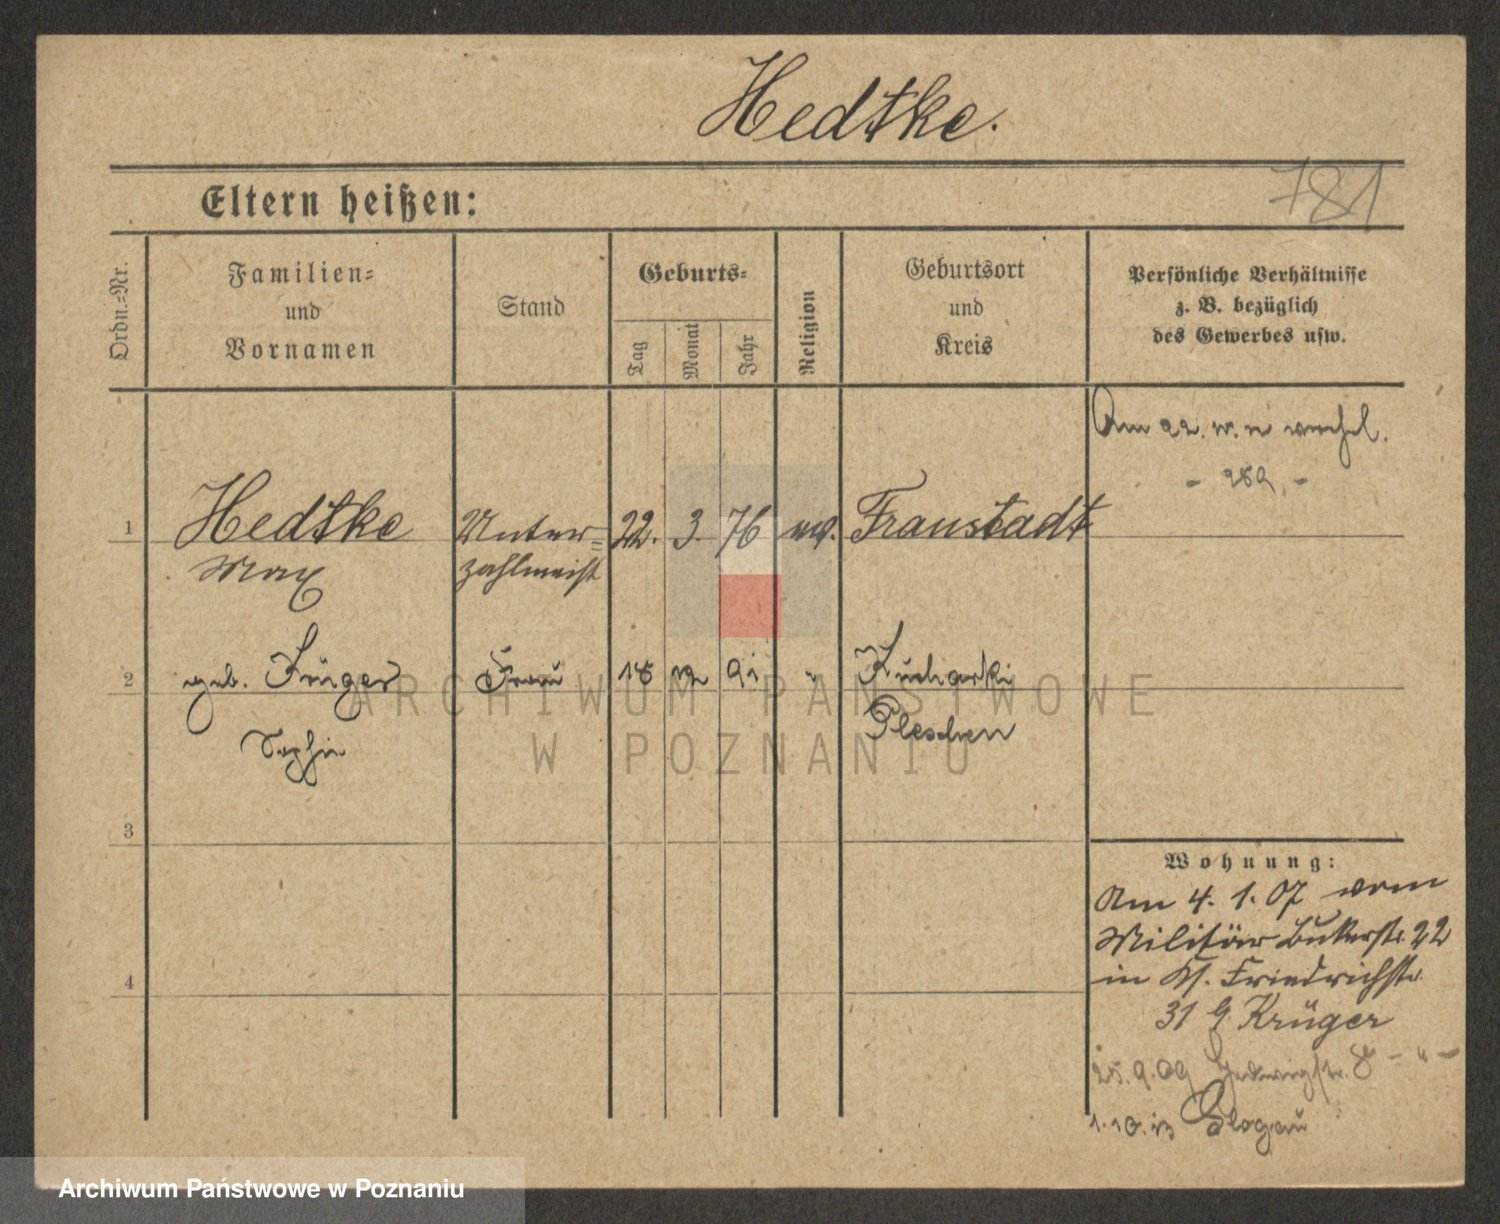 Hedtke.
781
Eltern heißen:
Ordn.-Nr.
Familien-
und
Vornamen
Stand
Geburts-
Tag
Monat
Jahr
Religion
Geburtsort
und
Kreis
Persönliche Verhältnisse
z. B. bezüglich
des Gewerbes usw.
Am 22.
1
Hedtke
Max
Unter-
zahlmeist
22. 3. 76
Fraustadt
2
geb. Krüger
Sophie
Frau
18 91 "
Kucharki
Pleschen
3
4
Wohnung:
Am 4. 1. 07 vom
Militär Bukerstr. 22
in Friedrichstr.
31 b/ Krüger
25.9.09 Hedwigstr. 8 - " -
1.10.13 Glogau
ARCHIWUM PAŃSTWOWE
W POZNANIU
Archiwum Państwowe w Poznaniu